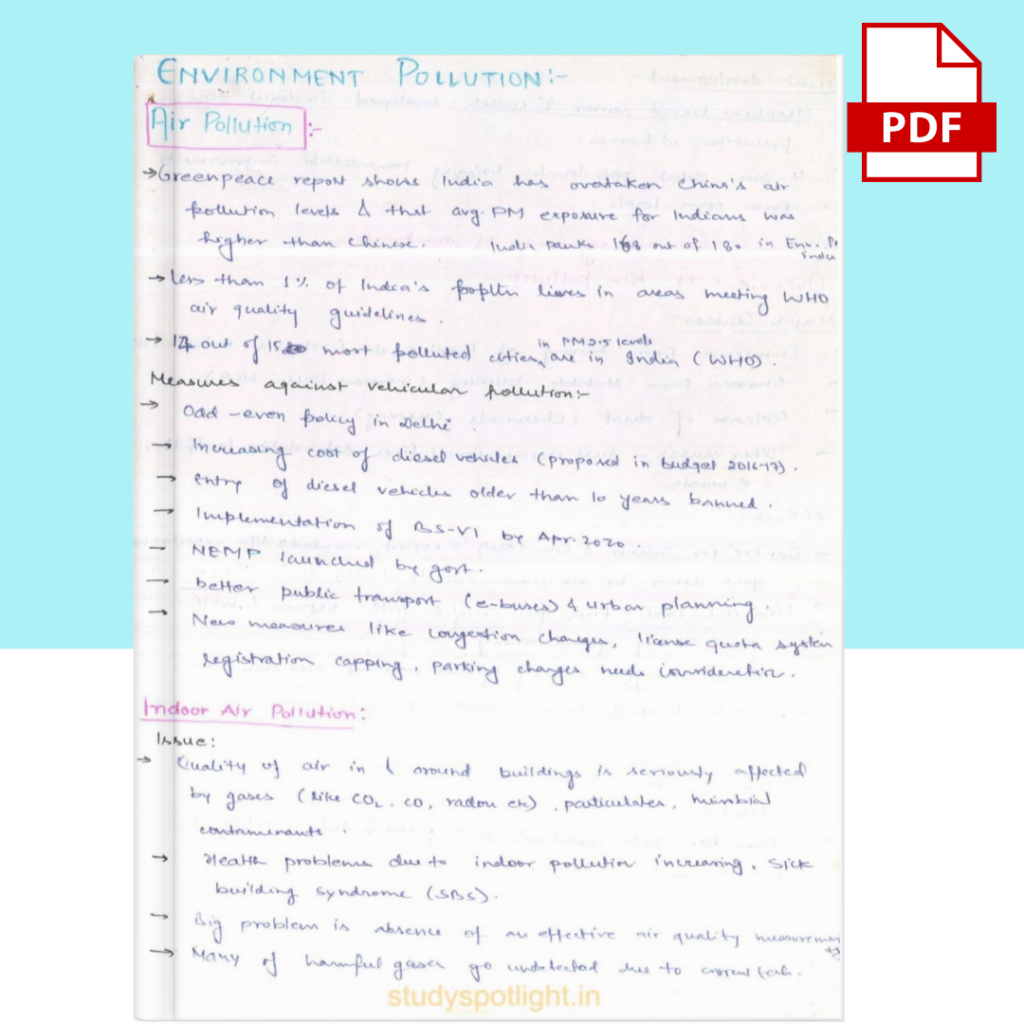 ENVIRONMENT POLLUTION:-
PDF
Air Pollution :-
→Greenpeace report shows India has overtaken China's air
pollution levels & that avg. PM exposure for Indians was
higher than Chinese. India ranks 168 out of 180 in Env. Pe
index
→ Less than 1% of India's popltn lives in areas meeting WHO
air quality guidelines.
in PM2.5 levels
→ 14 out of 15 most polluted cities, are in India (WHO).
Measures against vehicular pollution:-
→ Odd-even policy in Delhi.
→ Increasing cost of diesel vehicles (proposed in budget 2016-17).
→ Entry of diesel vehicles older than 10 years banned.
→ Implementation of BS-VI by Apr. 2020.
– NEMP launched by govt.
→ better public transport (e-buses) & urban planning.
→ New measures like congestion charges, license quota system
registration capping, parking charges needs consideration.
Indoor Air Pollution:
Issue:
→ Quality of air in & around buildings is seriously affected
by gases (like CO2, CO, radon etc), particulates, microbial
contaminants.
→ Health problems due to indoor pollution increasing. Sick
building syndrome (SBS).
→ Big problem is absence of an effective air quality measurement
→ Many of harmful gases go undetected due to current tech.
studyspotlight.in